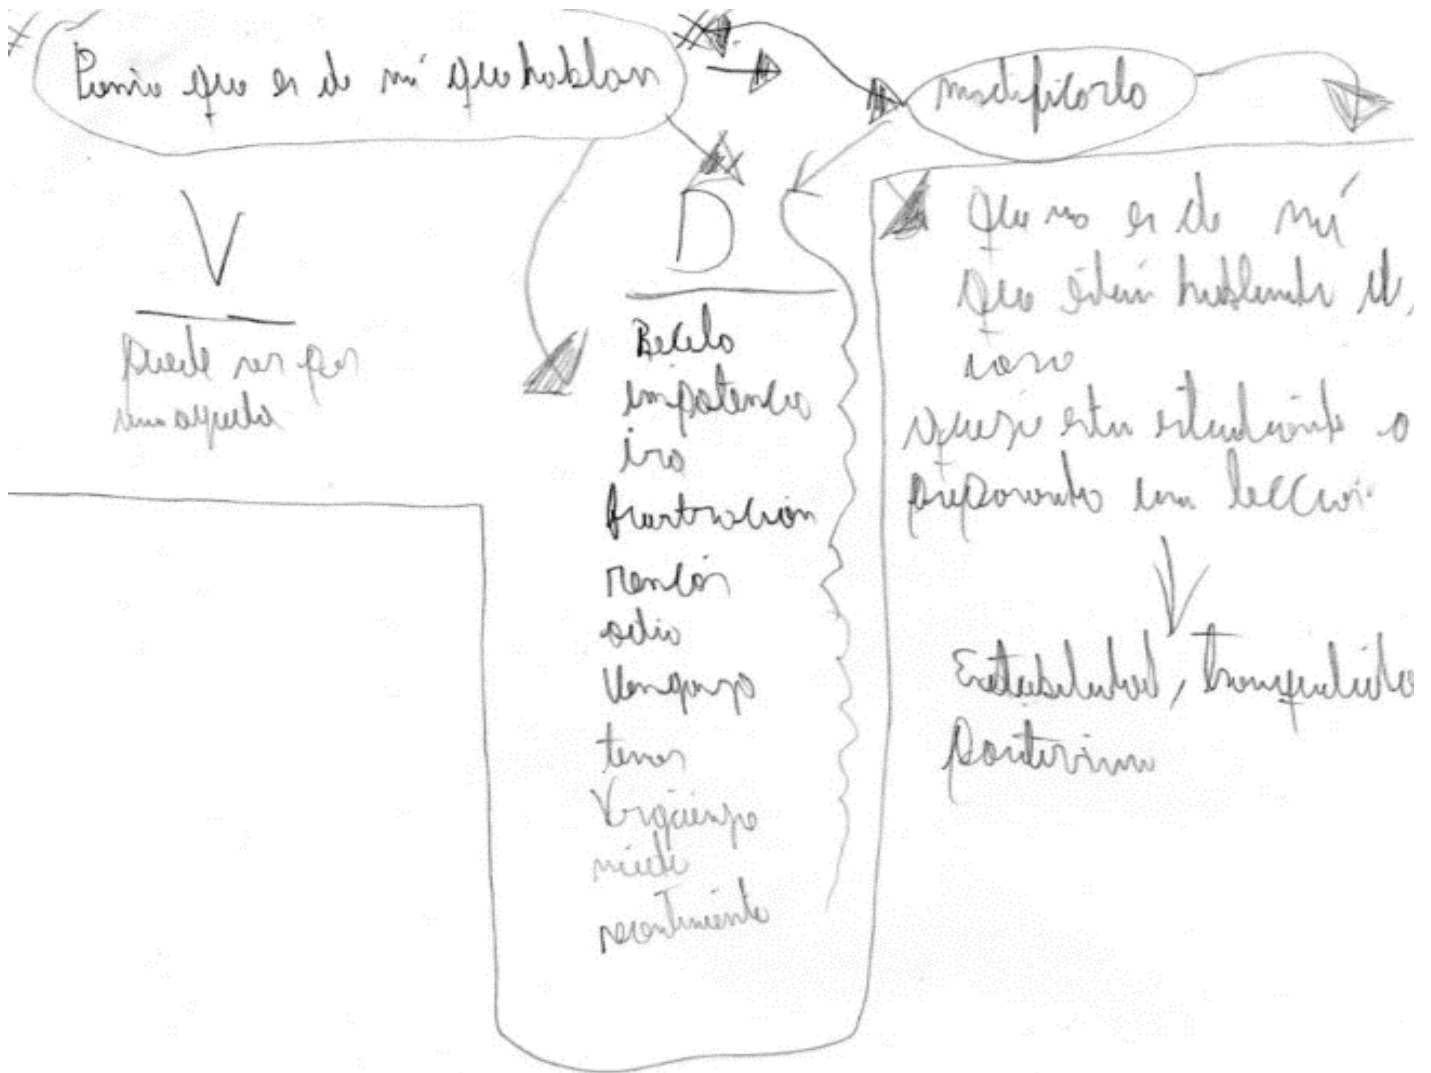 Pienso que es de mí que hablan
modificarlo
V
puede ser por
D
Recelo
impotencia
ira
frustración
rencor
odio
Venganza
temor
Vergüenza
miedo
resentimiento
que no es de mí
que están hablando
preparando una lección
Estabilidad, tranquilida